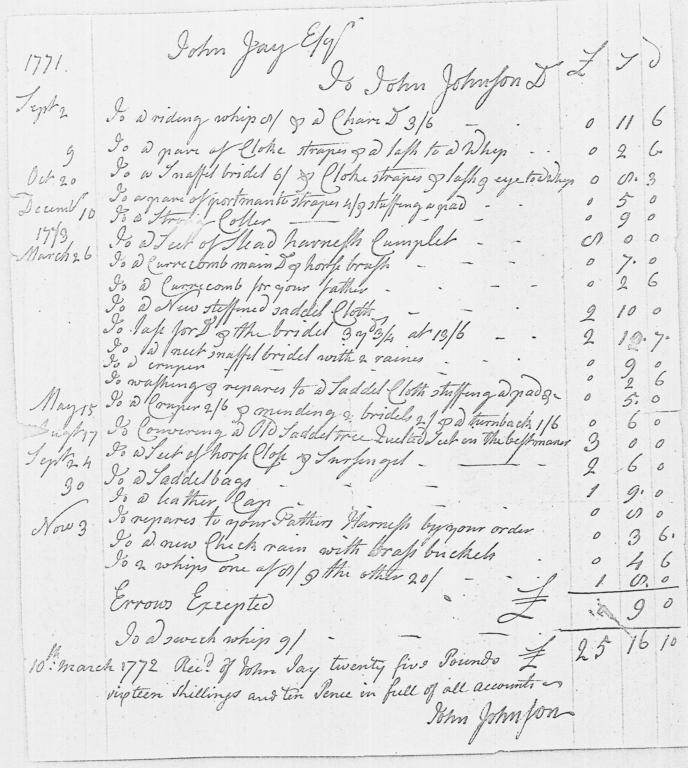 1771. John Jay Esqr
To John Johnson Dr £ S D
Sept 2 To a riding whip 8/ & a Chare Do 3/6 0 11 6
9 To a pare of Cloke strapes & a lash to a Whip 0 2 6
Oct 20 To a Snaffel bridel 6/ & Cloke strapes & lash & eye to Whip 0 8 3
To a pare of portmante strapes 4/ & stuffing a pad 0 5 0
Decembr 10 To a Coller 0 9 0
1773 To a Sett of Slead harness Cumplet 8 0 0
March 26 To a Currecomb main Do & horse brush 0 7 0
To a Currecomb for your father 0 2 6
To a New steffined saddel Cloth 2 10 0
To lase for Do & the bridel 3 yds 3/4 at 13/6 2 7
To a neet snaffel bridel with 2 raines 0 9 0
To a cruper 0 2 6
To washing & repares to a Saddel Cloth stuffing a pad &c 0 5 0
May 15 To a Cruper 2/6 & mending 2 bridels 2/ & a turnback 1/6 0 6 0
Augt 17 To Couvering a Old Saddel tree Seet in the best maner 3 0 0
Sept 24 To a Seet of horse Close & Sursengel 2 6 0
30 To a Saddel bags 1 9 0
To a leather Cap 0 8 0
Nov 3 To repares to your Fathers Harness by your order 0 3 6
To a new Check rain with brass buckels 0 4 6
To 2 whips one of 8/ & the other 20/ 1 8 0
Errows Excepted £
To a sweck whip 9/ 9 0
£ 25 16 10
10th march 1772 Recd of John Jay twenty five Pounds
sixteen shillings and ten Pence in full of all accounts
John Johnson